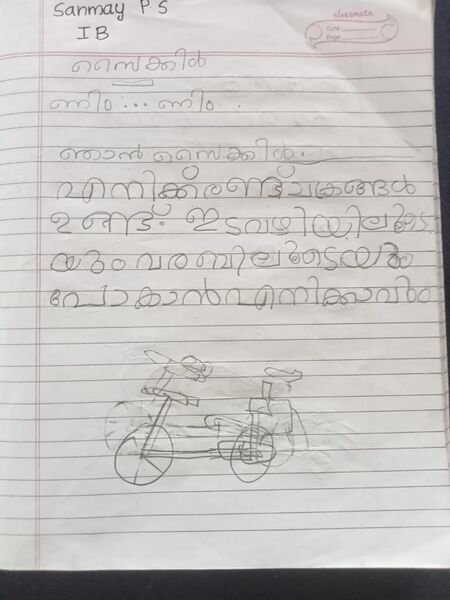 Sanmay P S
I B
classmate
Date
Page
സൈക്കിൾ
ണിം... ണിം..
ഞാൻ സൈക്കിൾ.
എനിക്ക് രണ്ട് ചക്രങ്ങൾ
ഉണ്ട്. ഇടവഴിയിലൂടെ
യും വരമ്പിലൂടെയും
പോകാൻ എനിക്കാവും